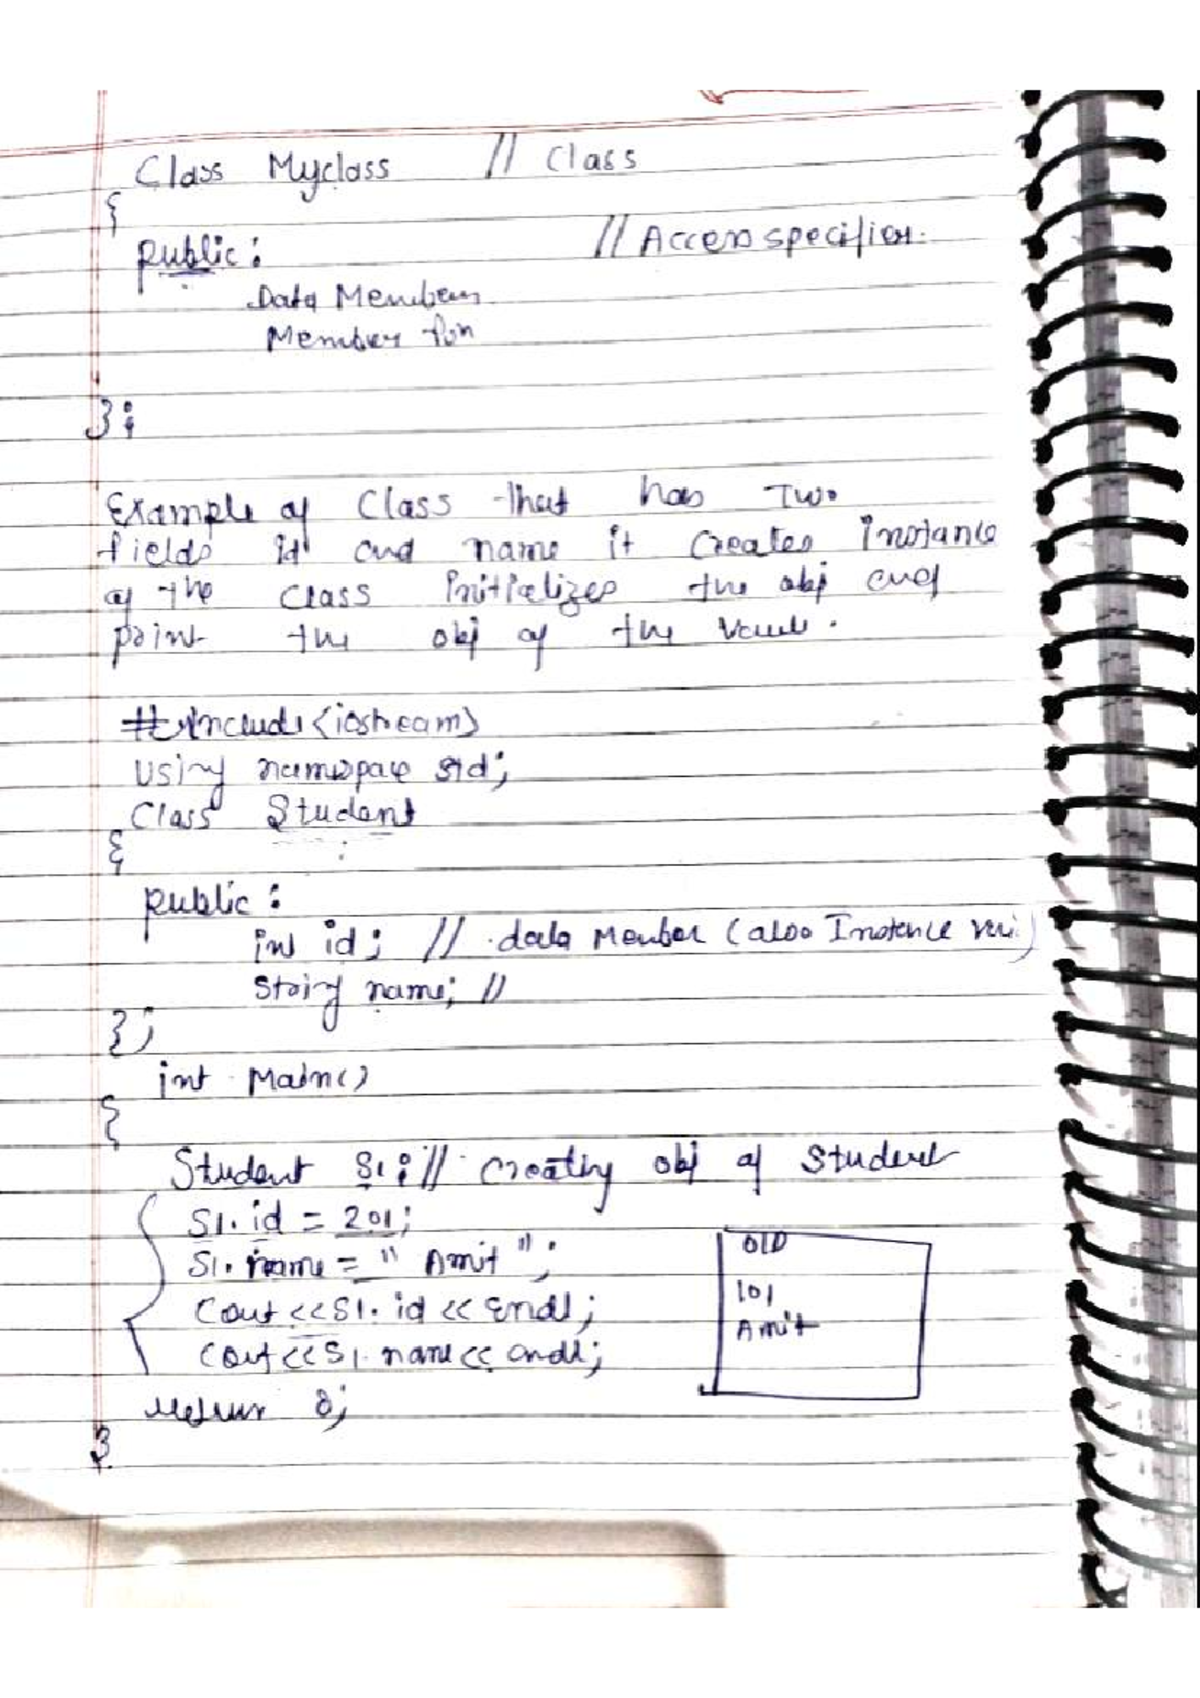 Class Myclass // Class
{
public: // Access specifier.
Data Members
Member fun
};
Example of Class that has Two
fields id and name it creates instance
of the class initializes the obj and
print the obj of the value.
#include <iostream>
Using namespace std;
Class Student
{
public:
int id; // data Member (also Instance var.)
String name; //
};
int Main()
{
Student S1; // Creating obj of Student
S1.id = 201;
S1.name = "Amit";
Cout << S1.id << Endl;
Cout << S1.name << endl;
return 0;
}
O/P
101
Amit